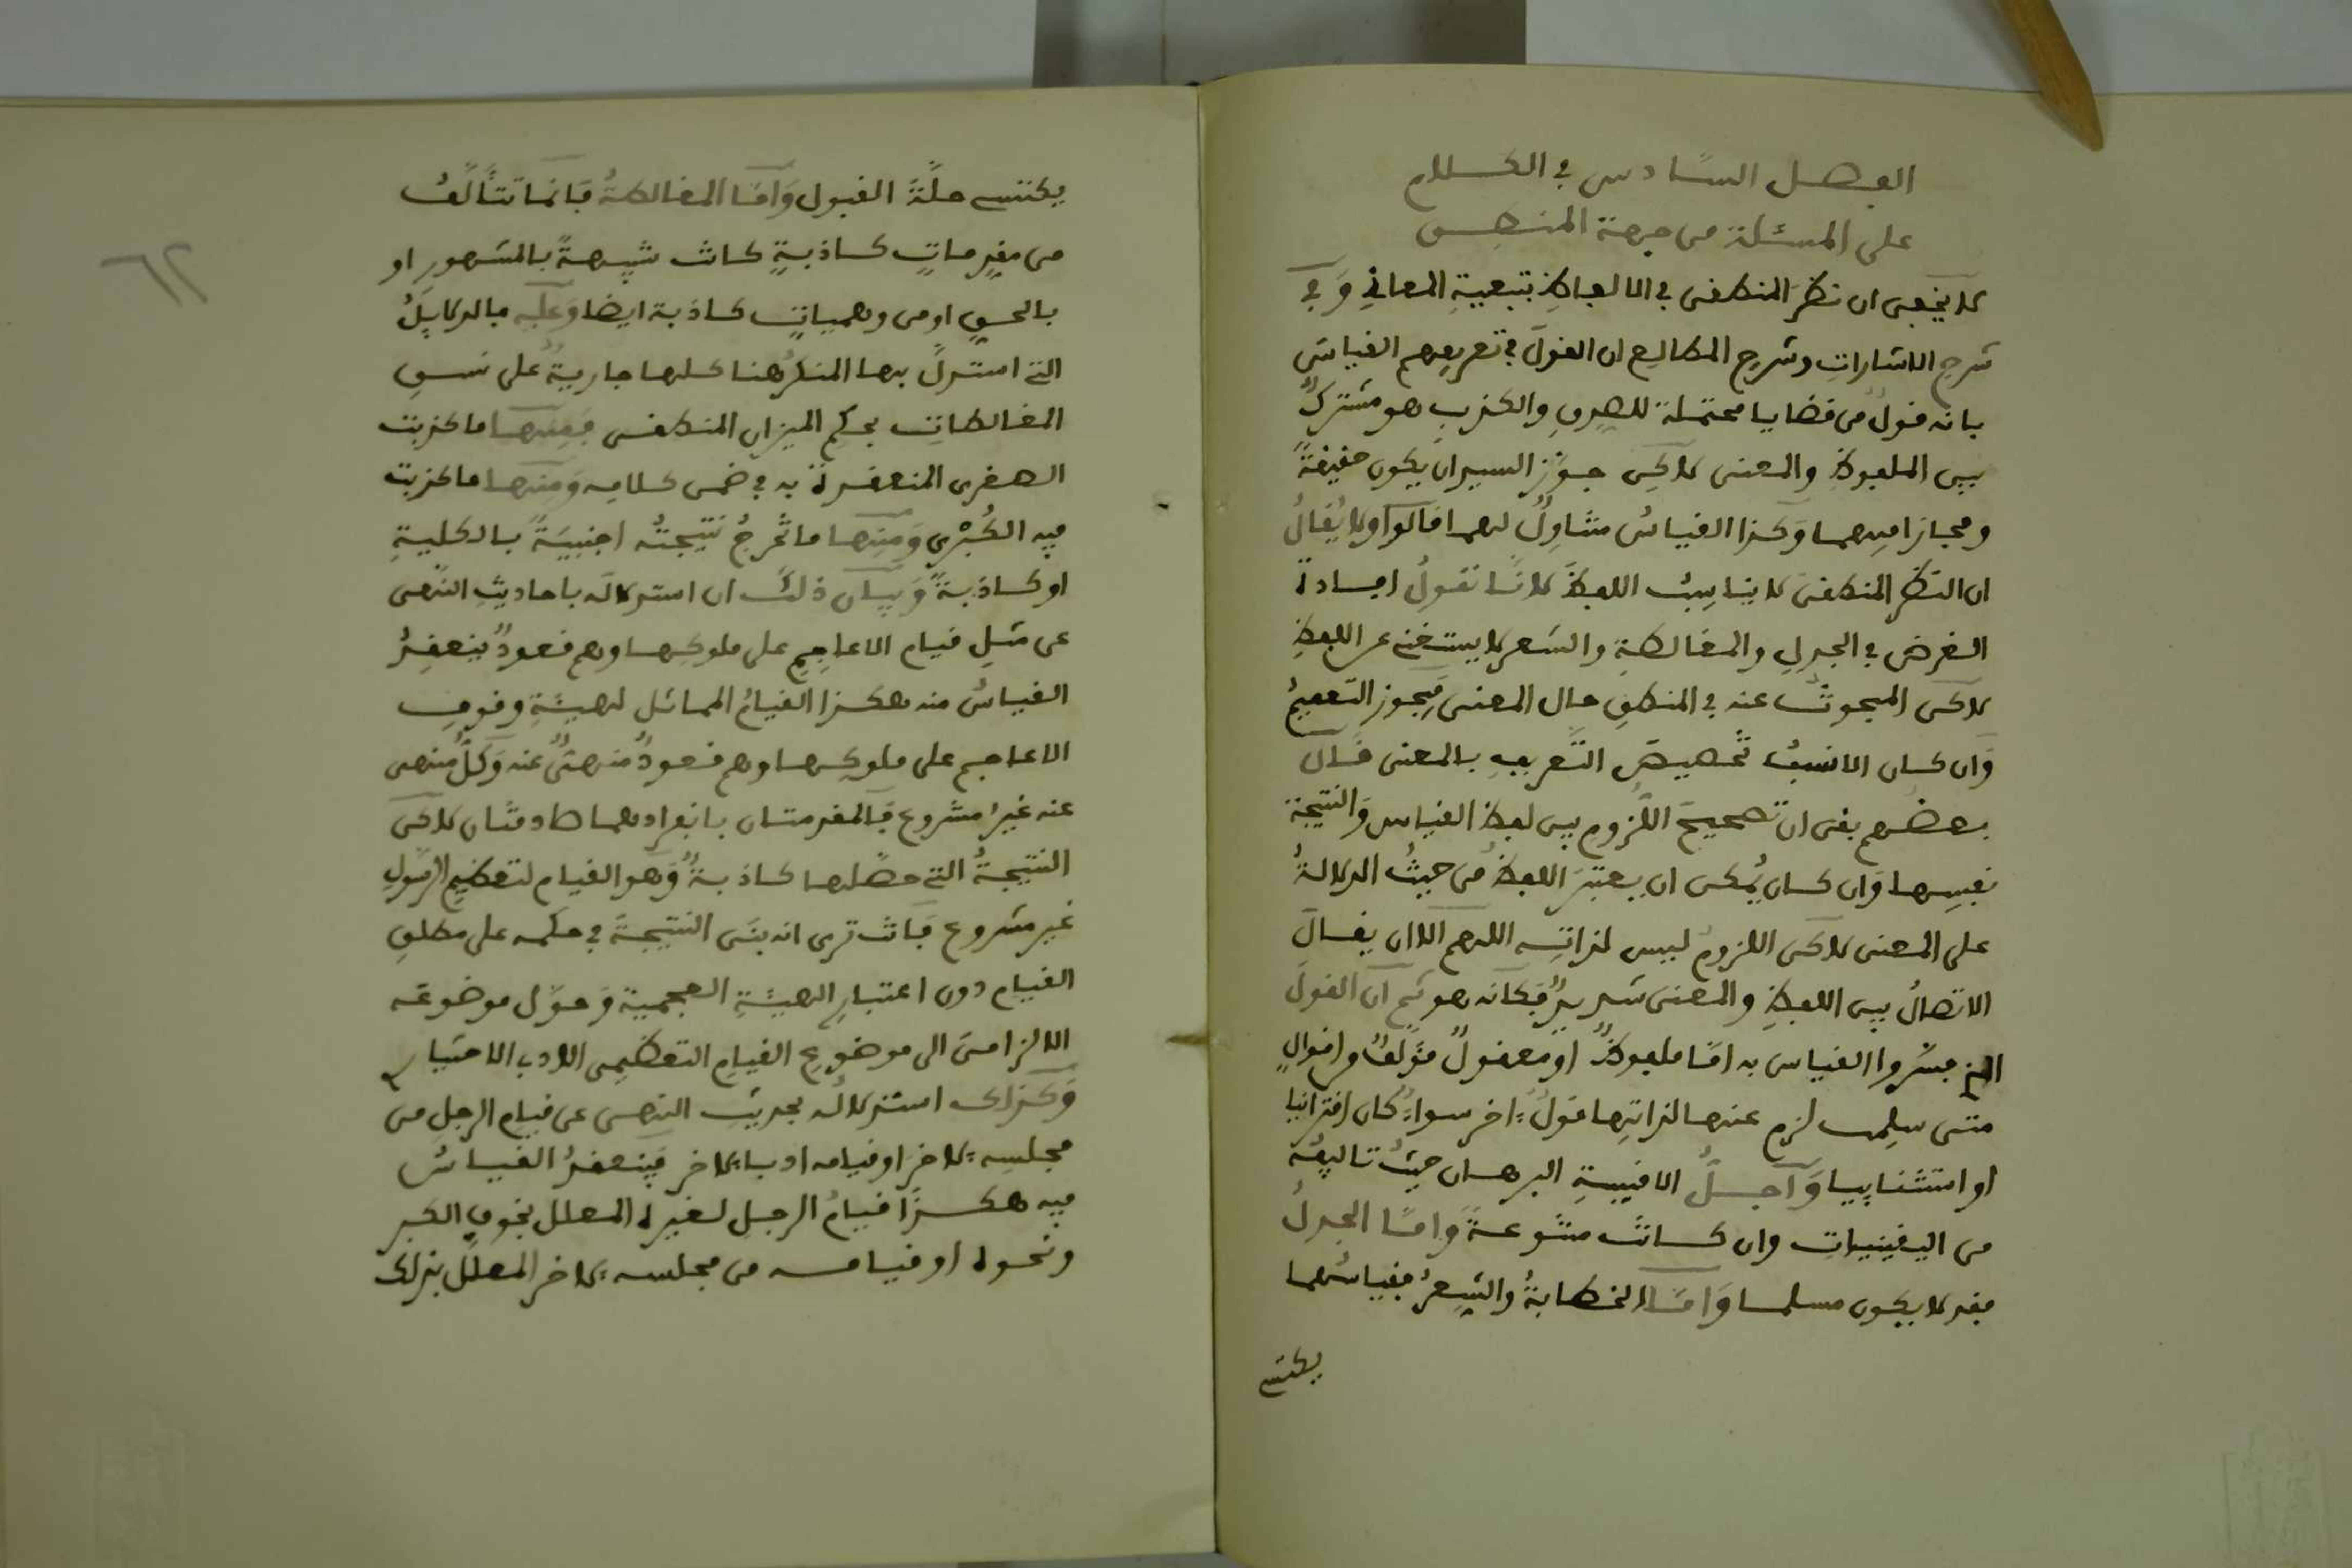 الفصل السَّادس في الكلام
على المسئلة من جهة المنطق
لا يخفى ان نظرَ المنطقى في الالفاظِ بتبعيةِ المعاني وَفي
شرحِ الاشاراتِ وشرحِ المطالعِ ان القولَ في تعريفِهم القياسَ
بانه قولٌ من قضايا محتملة للصدقِ والكذبِ هو مشتركٌ
بين الملفوظِ والمعنى لاكن جوَّز السيد ان يكون حقيقةً
ومجازا فيهما وَكذا القياسُ متناوِلٌ لهما قالوا ولا يُقالُ
ان النظرَ المنطقىَ لا يناسِبُ اللفظَ لانَّا نقولُ افادة
الغرض في الجدلِ والمغالطةِ والشعر لا يستغنى عن اللفظِ
لاكن المبحوثَ عنه في المنطقِ حال المعنى فيجوز التعميمُ
وَان كان الانسبُ تخصيصَ التَّعريفِ بالمعنى قال
بعضُهم بقى ان تصحيحَ اللُّزومِ بين لفظ القياس وَالنتيجة
نفسِها وَان كان يُمكن ان يعتبرَ اللفظُ من حيثُ الدلالةُ
على المعنى لاكن اللزومَ ليس لذاتِه اللهم الا ان يقالَ
الاتصالُ بين اللفظِ والمعنى شديدٌ فكانه هو ثم ان القولَ
الذي فسّروا القياس به امّا ملفوظٌ او معقولٌ مؤلفٌ من اقوالٍ
متى سلِمت لزم عنها لذاتِها قولٌ اخر سواءٌ كان اقترانيا
او استثناييا وَاجلُّ الاقيِسةِ البرهان حيثُ تاليفُه
من اليقينيات وان كانت متنوعةً وَامّا الجدلُ
فقد لا يكون مسلما وَامّا الخطابةُ والشِعرُ فقياسُهما
يكتسى
يكتسى حلَّةَ القبول وَامّا المغالطةُ فانما تتألَّفُ
من مقدِماتٍ كاذبةٍ كانت شبيهةً بالمشهورِ او
بالحقِ او من وهمياتٍ كاذبة ايضا وَعليه فالدلايلُ
التى استدلَّ بها المنكرُ هنا كلها جاريةٌ على نسقِ
المغالطاتِ بحكم الميزان المنطقى فمنها ما كذبت
الصغرى المنعقدة به في ضمن كلامه وَمنها ما كذبت
فيه الكُبْرى وَمنها ما تُخرجُ نتيجتُه اجنبيَةً بالكليةِ
او كاذبةً وَبيان ذلك ان استدلالَه باحاديثِ النَّهى
عن مثلِ قيام الاعاجِمِ على ملوكِها وهم قعودٌ ينعقِدُ
القياسُ منه هكذا القيامُ المماثل لهيئةِ وقوفِ
الاعاجم على ملوكها وهم قعودٌ منهىٌّ عنه وَكلُّ منهى
عنه غيرُ مشروع فالمقدمتان بانفرادهما صادقتان لاكن
النتيجةُ التى حصَّلها كاذبةٌ وَهو القيام لتعظيمِ الرسول
غير مشروع فانت ترى انه بنَى النتيجةَ في حكمه على مطلقِ
القيام دون اعتبارِ الهيئةِ العجمية وَحوَّل موضوعَه
الالزامىَ الى موضوعِ القيامِ التعظيمى الادب الاختيارى
وَكذلك استدلالُه بحديث النهى عن قيام الرجلِ من
مجلسِه لاخر او قيامه ادبا لاخر فينعقدُ القياسُ
فيه هكذا قيامُ الرجل لغيره المعلل بخوف الكبر
ونحوه او قيامه من مجلسه لاخر المعلَّل بذلك
٦٢